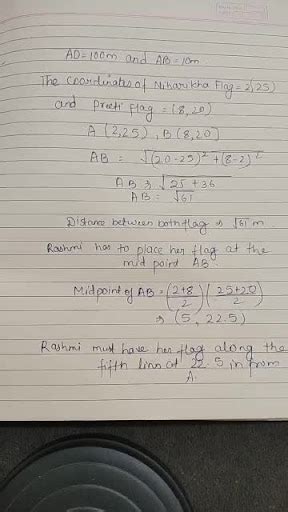 AD=100m and AB=10m
The coordinates of Niharikha Flag=2,25)
and Preeti flag = (8,20)
A (2,25), B(8,20)
AB = √(20-25)² + (8-2)²
AB is √25+36
AB = √61
Distance between both flag is √61 m.
Rashmi has to place her flag at the
mid point AB.
Midpoint of AB = (2+8/2) (25+20/2)
is (5, 22.5)
Rashmi must have her flag along the
fifth linn at 22.5 in from
A.